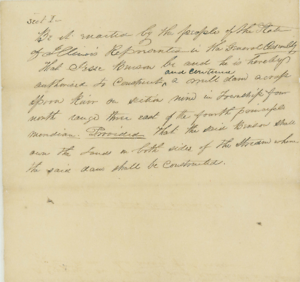 Sect 1-
Be it enacted by the people of the State
of Illinois Represented in the General Assembly
That Isaac Brown be and he is hereby
and continue
authorised to Construct, a mill dam across
River on section nine in Township four
north range three east of the fourth principle
meridian Provided That the said shall
own the lands on both sides of the Stream where
the said dam shall be Constructed.